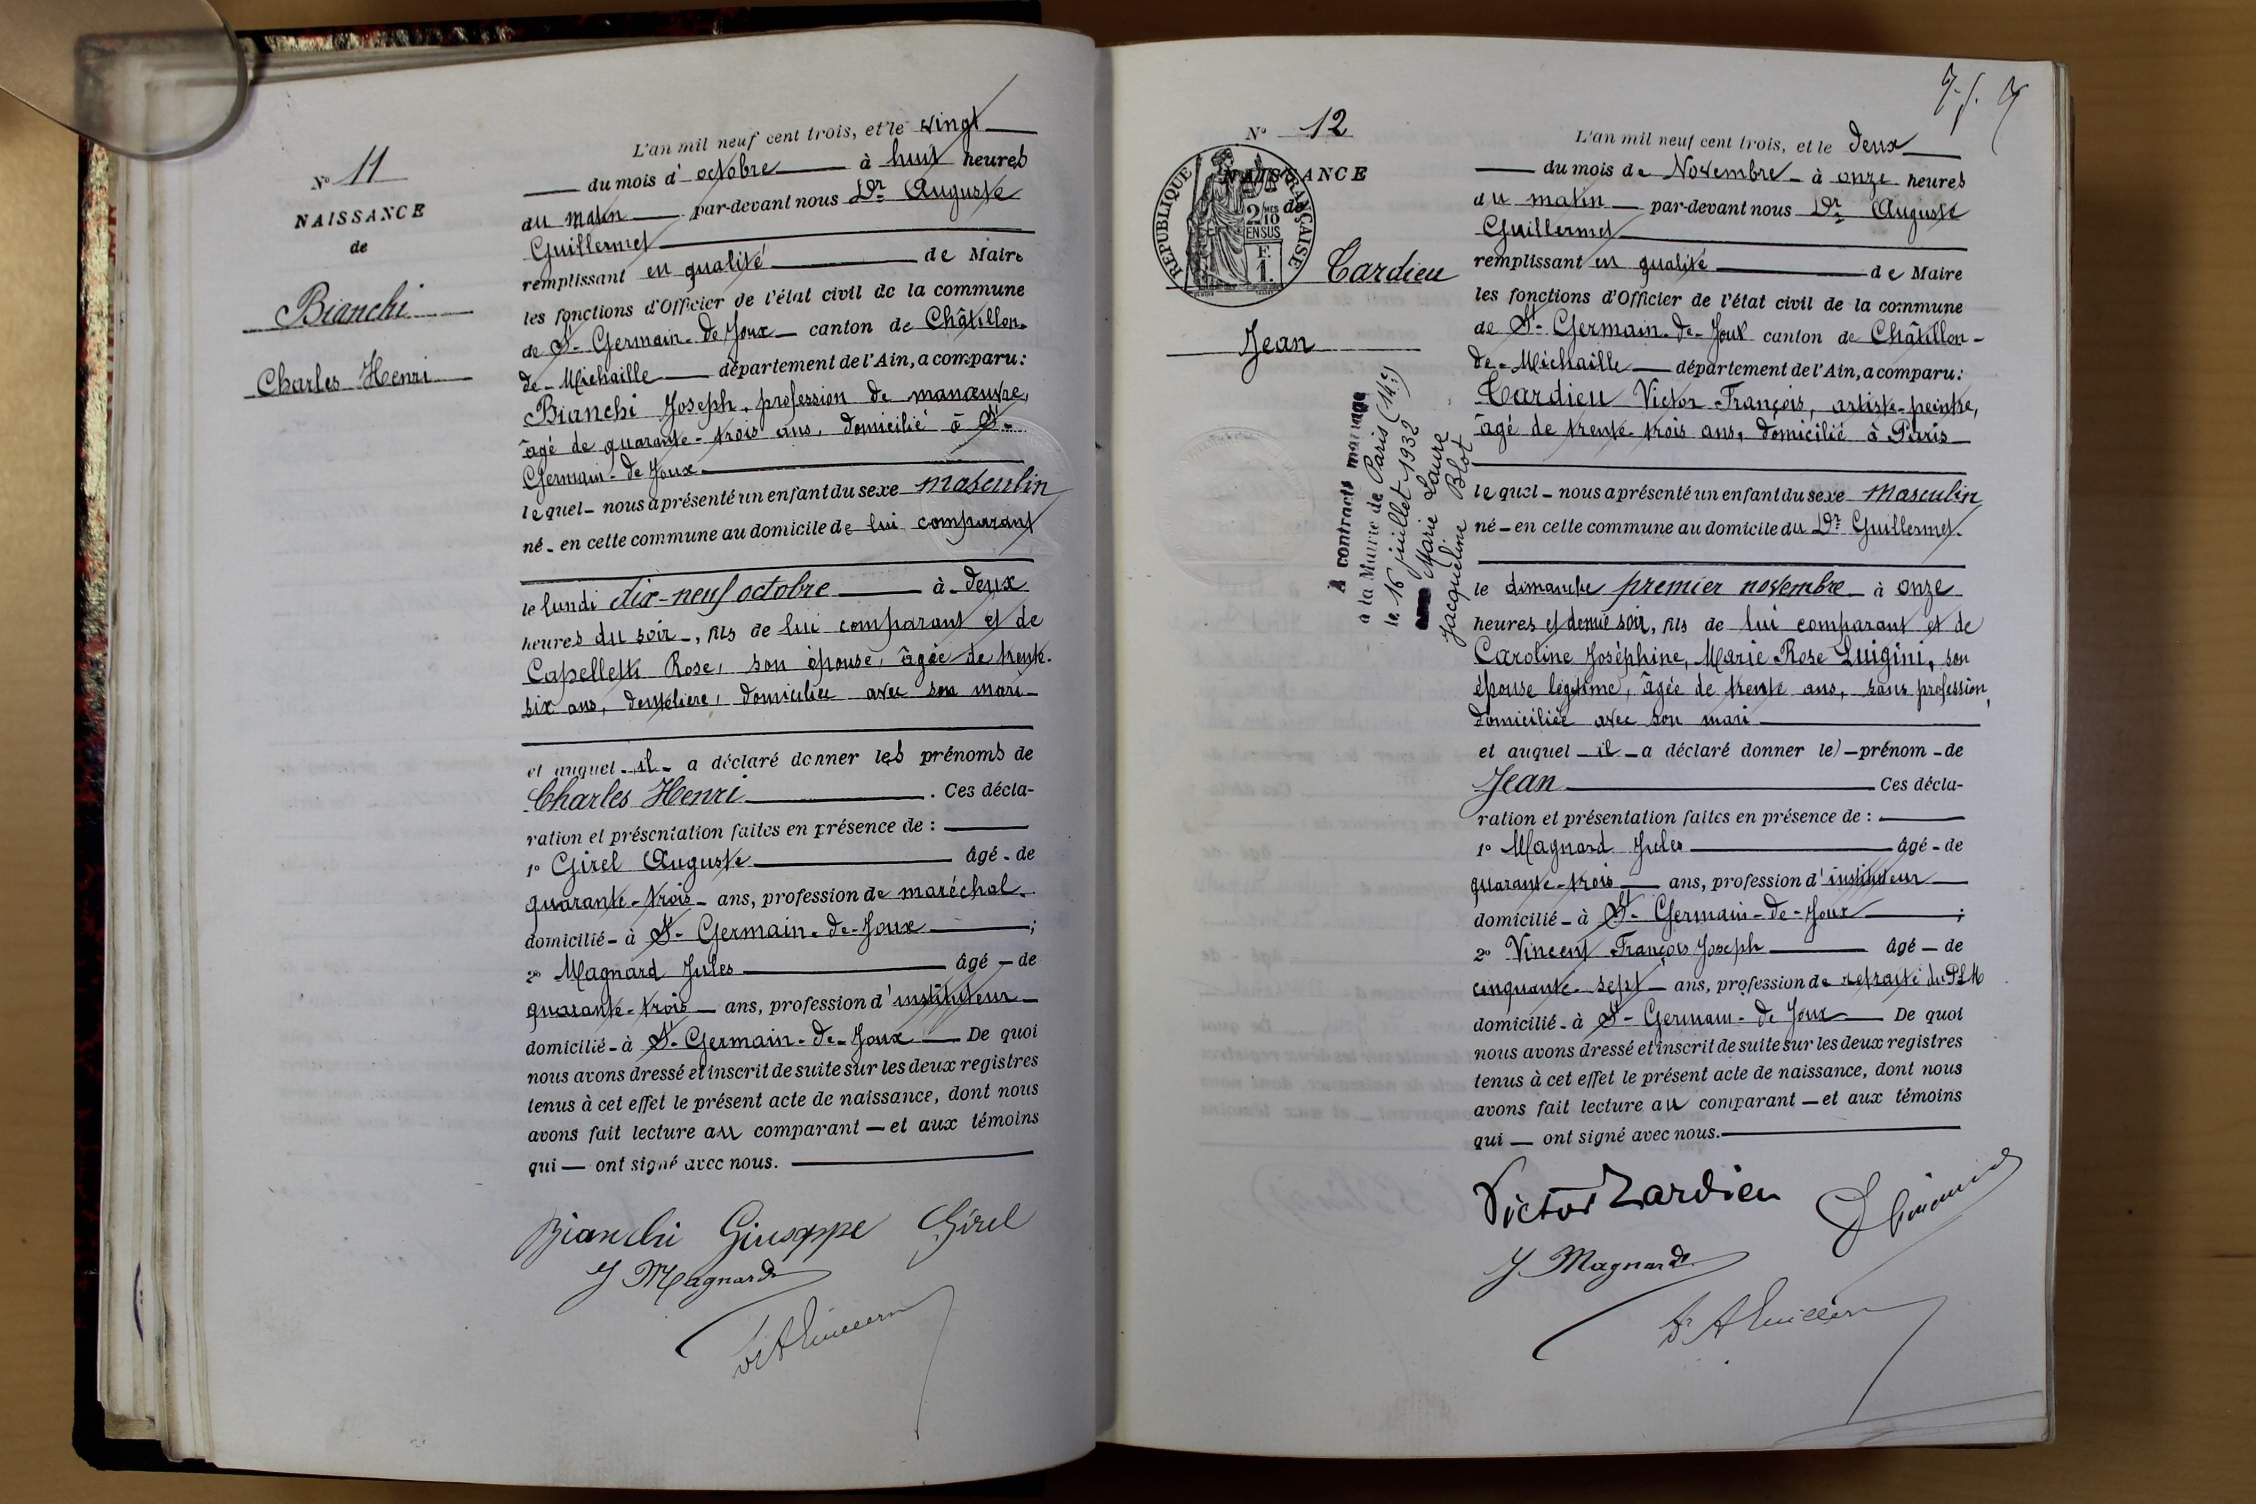 N° 11
NAISSANCE
de
Bianchi
Charles Henri
L'an mil neuf cent trois, et le vingt
du mois d'octobre à huit heures
du matin par-devant nous Dr Auguste
Guillermet
remplissant en qualité de Maire
les fonctions d'Officier de l'état civil de la commune
de St-Germain-de-Joux canton de Châtillon-
de-Michaille département de l'Ain, a comparu:
Bianchi Joseph, profession de manœuvre,
âgé de quarante-trois ans, domicilié à St-
Germain-de-Joux
lequel nous a présenté un enfant du sexe masculin
né en cette commune au domicile de lui comparant
le lundi dix-neuf octobre à deux
heures du soir, fils de lui comparant et de
Capelletti Rose, son épouse, âgée de trente-
six ans, dentelière, domiciliée avec son mari
et auquel il a déclaré donner les prénoms de
Charles Henri. Ces décla-
ration et présentation faites en présence de :
1° Girel Auguste âgé de
quarante-trois ans, profession de maréchal
domicilié à St-Germain-de-Joux ;
2° Magnard Jules âgé de
quarante-trois ans, profession d'instituteur
domicilié à St-Germain-de-Joux De quoi
nous avons dressé et inscrit de suite sur les deux registres
tenus à cet effet le présent acte de naissance, dont nous
avons fait lecture au comparant et aux témoins
qui ont signé avec nous.
Bianchi Giuseppe Girel
J Magnard
N° 12
NAISSANCE
de
RÉPUBLIQUE FRANÇAISE
2/10 EN SUS
F. 1.
Tardieu
Jean
A contracté mariage
à la Mairie de Paris (14e)
le 16 juillet 1932
Marie Laure
Jacqueline Blot
L'an mil neuf cent trois, et le deux
du mois de Novembre à onze heures
du matin par-devant nous Dr Auguste
Guillermet
remplissant en qualité de Maire
les fonctions d'Officier de l'état civil de la commune
de St-Germain-de-Joux canton de Châtillon-
de-Michaille département de l'Ain, a comparu:
Tardieu Victor François, artiste-peintre,
âgé de trente-trois ans, domicilié à Paris
lequel nous a présenté un enfant du sexe masculin
né en cette commune au domicile du Dr Guillermet.
le dimanche premier novembre à onze
heures et demie soir, fils de lui comparant et de
Caroline Joséphine, Marie Rose Luigini, son
épouse légitime, âgée de trente ans, sans profession,
domiciliée avec son mari
et auquel il a déclaré donner le prénom de
Jean Ces décla-
ration et présentation faites en présence de :
1° Magnard Jules âgé de
quarante-trois ans, profession d'instituteur
domicilié à St-Germain-de-Joux ;
2° Vincent François Joseph âgé de
cinquante-sept ans, profession de retraité du PLM
domicilié à St-Germain-de-Joux De quoi
nous avons dressé et inscrit de suite sur les deux registres
tenus à cet effet le présent acte de naissance, dont nous
avons fait lecture au comparant et aux témoins
qui ont signé avec nous.
Victor Tardieu
J Magnard